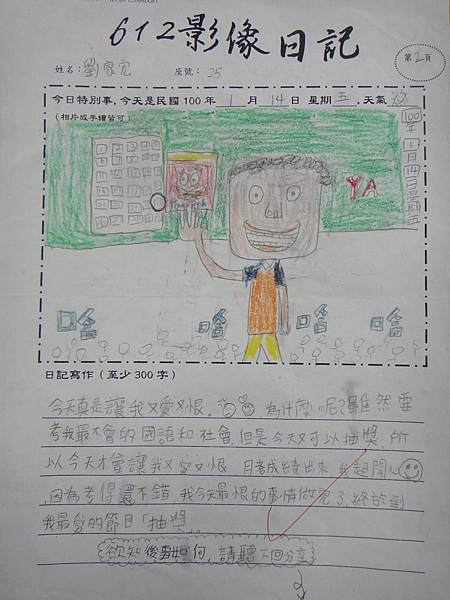 612影像日記
第2頁
姓名：劉 座號：25
今日特別事，今天是民國100年 1 月 14 日 星期五，天氣
(相片或手繪皆可)
100年一月14日星期五
YA
哈 哈 哈 哈
日記寫作（至少300字）
今天真是讓我又愛又恨。為什麼呢？雖然要
考我最不會的國語和社會，但是今天又可以抽獎，所
以今天才會讓我又愛又恨，月考成績出來，我超開心
，因為考得還不錯，我今天最恨的事情做完了，終於到
我最愛的節目「抽獎」。
欲知後事如何，請聽下回分享